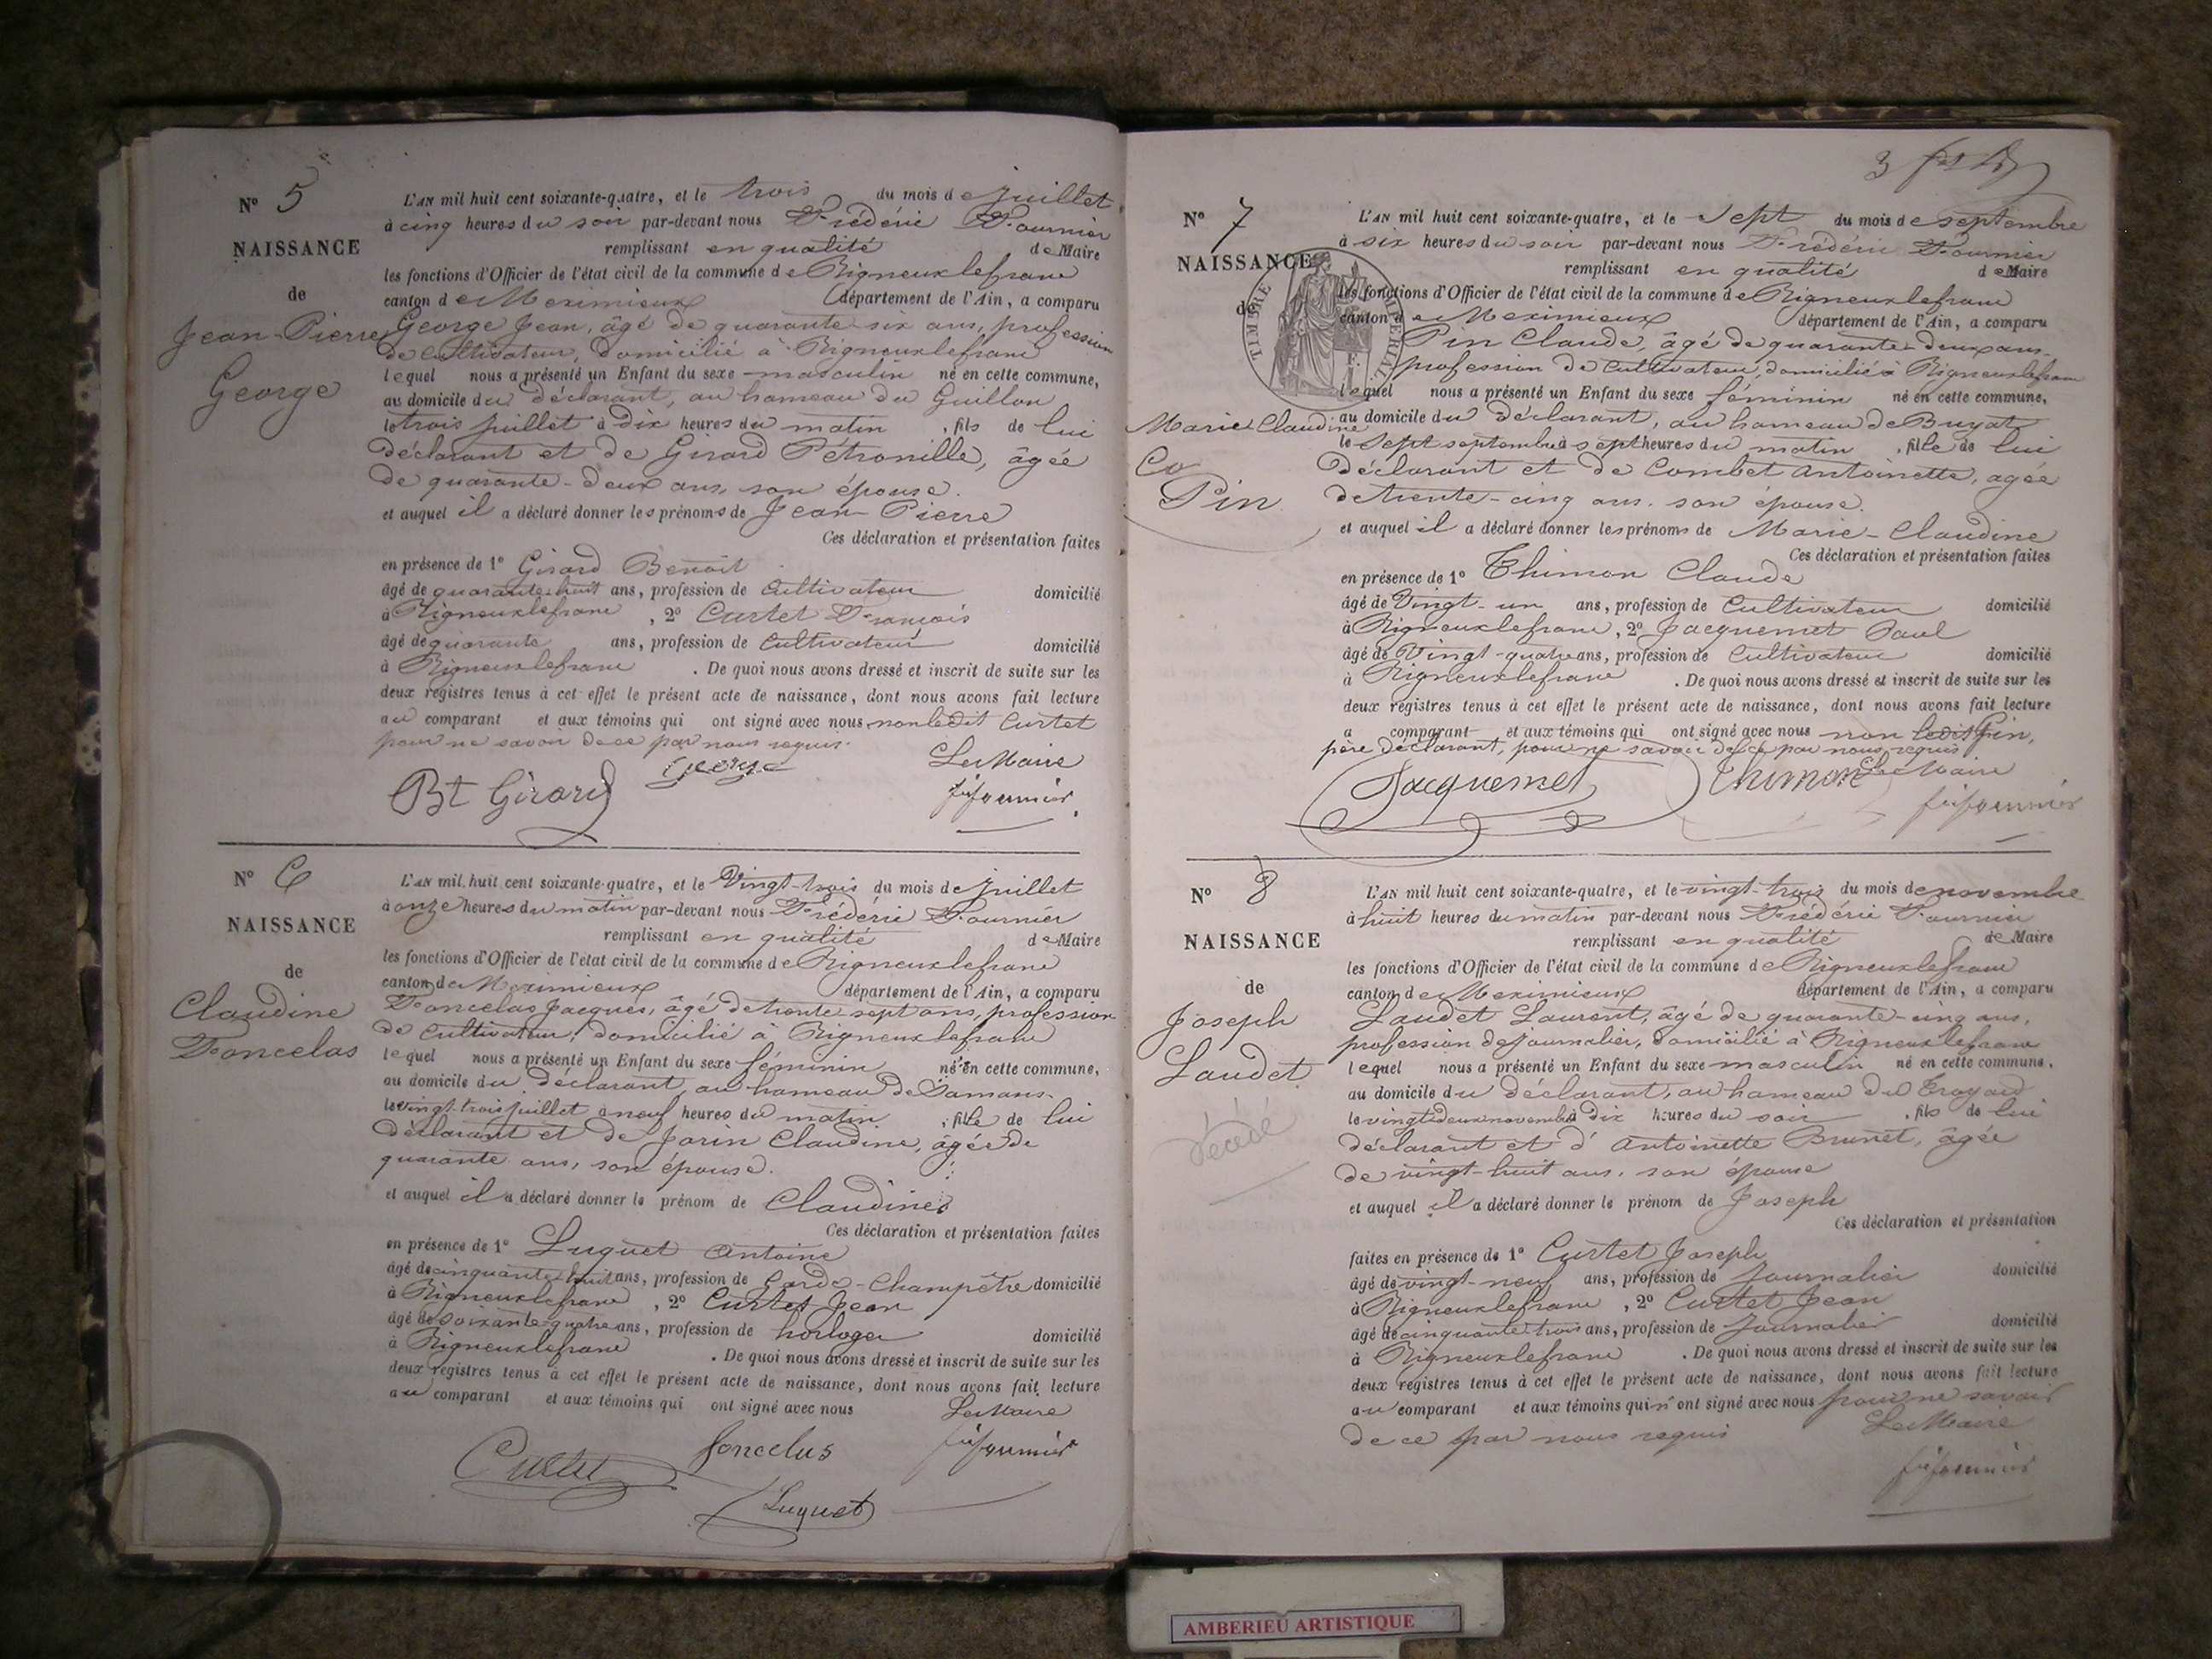 N° 5
NAISSANCE
de
Jean-Pierre
George
L'AN mil huit cent soixante-quatre, et le trois du mois de juillet
à cinq heures du soir par-devant nous Frédéric Fournier
remplissant en qualité de Maire
les fonctions d'Officier de l'état civil de la commune de Rigneuxlefranc
canton de Meximieux département de l'Ain, a comparu
George Jean, âgé de quarante-six ans, profession
de cultivateur, domicilié à Rigneuxlefranc
lequel nous a présenté un Enfant du sexe masculin né en cette commune,
au domicile du déclarant, au hameau du Guillon
le trois juillet à dix heures du matin, fils de lui
déclarant et de Girard Pétronille, âgée
de quarante-deux ans, son épouse.
et auquel il a déclaré donner les prénoms de Jean-Pierre
Ces déclaration et présentation faites
en présence de 1° Girard Benoît
âgé de quarante-huit ans, profession de Cultivateur domicilié
à Rigneuxlefranc, 2° Curtet François
âgé de quarante ans, profession de Cultivateur domicilié
à Rigneuxlefranc. De quoi nous avons dressé et inscrit de suite sur les
deux registres tenus à cet effet le présent acte de naissance, dont nous avons fait lecture
au comparant et aux témoins qui ont signé avec nous non ledit Curtet
pour ne savoir de ce par nous requis.
Bt Girard George Le Maire
fc fournier
N° 6
NAISSANCE
de
Claudine
Foncelas
L'AN mil huit cent soixante-quatre, et le Vingt-trois du mois de juillet
à onze heures du matin par-devant nous Frédéric Fournier
remplissant en qualité de Maire
les fonctions d'Officier de l'état civil de la commune de Rigneuxlefranc
canton de Meximieux département de l'Ain, a comparu
Foncelas Jacques, âgé de trente sept ans, profession
de Cultivateur, domicilié à Rigneuxlefranc
lequel nous a présenté un Enfant du sexe féminin né en cette commune,
au domicile du déclarant, au hameau de Samans.
le vingt-trois juillet à neuf heures du matin, fille de lui
déclarant et de Jarin Claudine, âgée de
quarante ans, son épouse.
et auquel il a déclaré donner le prénom de Claudine
Ces déclaration et présentation faites
en présence de 1° Luquet Antoine
âgé de cinquante-huit ans, profession de Garde-Champêtre domicilié
à Rigneuxlefranc, 2° Curtet Jean
âgé de soixante-quatre ans, profession de horloger domicilié
à Rigneuxlefranc. De quoi nous avons dressé et inscrit de suite sur les
deux registres tenus à cet effet le présent acte de naissance, dont nous avons fait lecture
au comparant et aux témoins qui ont signé avec nous Le Maire
Curtet foncelas fc fournier
Luquet
N° 7
NAISSANCE
de
TIMBRE IMPERIAL
Marie Claudine
Pin
L'AN mil huit cent soixante-quatre, et le Sept du mois de septembre
à six heures du soir par-devant nous Frédéric Fournier
remplissant en qualité de Maire
les fonctions d'Officier de l'état civil de la commune de Rigneuxlefranc
canton de Meximieux département de l'Ain, a comparu
Pin Claude, âgé de quarante-deux ans
profession de Cultivateur, domicilié à Rigneuxlefranc
lequel nous a présenté un Enfant du sexe féminin né en cette commune,
au domicile du déclarant, au hameau de Bruyat
le Sept septembre à sept heures du matin, fille de lui
déclarant et de Combet Antoinette, agée
de trente-cinq ans. son épouse.
et auquel il a déclaré donner les prénoms de Marie-Claudine
Ces déclaration et présentation faites
en présence de 1° Thimon Claude
âgé de Vingt-un ans, profession de Cultivateur domicilié
à Rigneuxlefranc, 2° Jacquemet Paul
âgé de Vingt-quatre ans, profession de Cultivateur domicilié
à Rigneuxlefranc. De quoi nous avons dressé et inscrit de suite sur les
deux registres tenus à cet effet le présent acte de naissance, dont nous avons fait lecture
a comparant et aux témoins qui ont signé avec nous non ledit Pin,
père déclarant, pour ne savoir de ce par nous requis
Jacquemet Thimon Le Maire
fc fournier
N° 8
NAISSANCE
de
Joseph
Laudet
décédé
L'AN mil huit cent soixante-quatre, et le vingt-trois du mois de novembre
à huit heures du matin par-devant nous Frédéric Fournier
remplissant en qualité de Maire
les fonctions d'Officier de l'état civil de la commune de Rigneuxlefranc
canton de Meximieux département de l'Ain, a comparu
Laudet Laurent, âgé de quarante-cinq ans,
profession de journalier, domicilié à Rigneuxlefranc
lequel nous a présenté un Enfant du sexe masculin né en cette commune,
au domicile du déclarant, au hameau du Troyard
le vingt deux novembre à dix heures du soir, fils de lui
déclarant et d'Antoinette Brunet, âgée
de vingt-huit ans, son épouse
et auquel il a déclaré donner le prénom de Joseph
Ces déclaration et présentation
faites en présence de 1° Curtet Joseph
âgé de vingt-neuf ans, profession de Journalier domicilié
à Rigneuxlefranc, 2° Curtet Jean
âgé de cinquante-trois ans, profession de Journalier domicilié
à Rigneuxlefranc. De quoi nous avons dressé et inscrit de suite sur les
deux registres tenus à cet effet le présent acte de naissance, dont nous avons fait lecture
au comparant et aux témoins qui n'ont signé avec nous pour ne savoir
de ce par nous requis Le Maire
fc fournier
AMBERIEU ARTISTIQUE